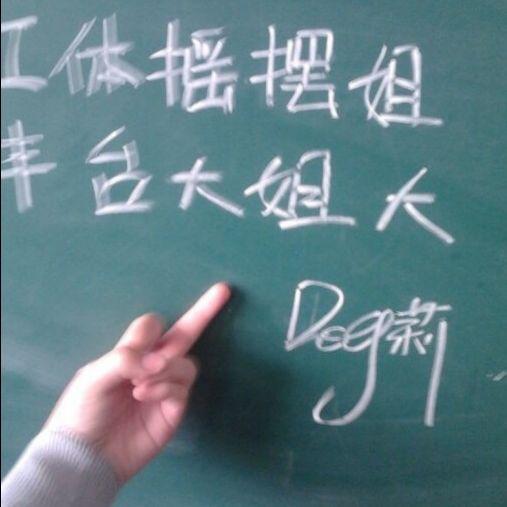 工体摇摆姐
丰台大姐大
Dog莉